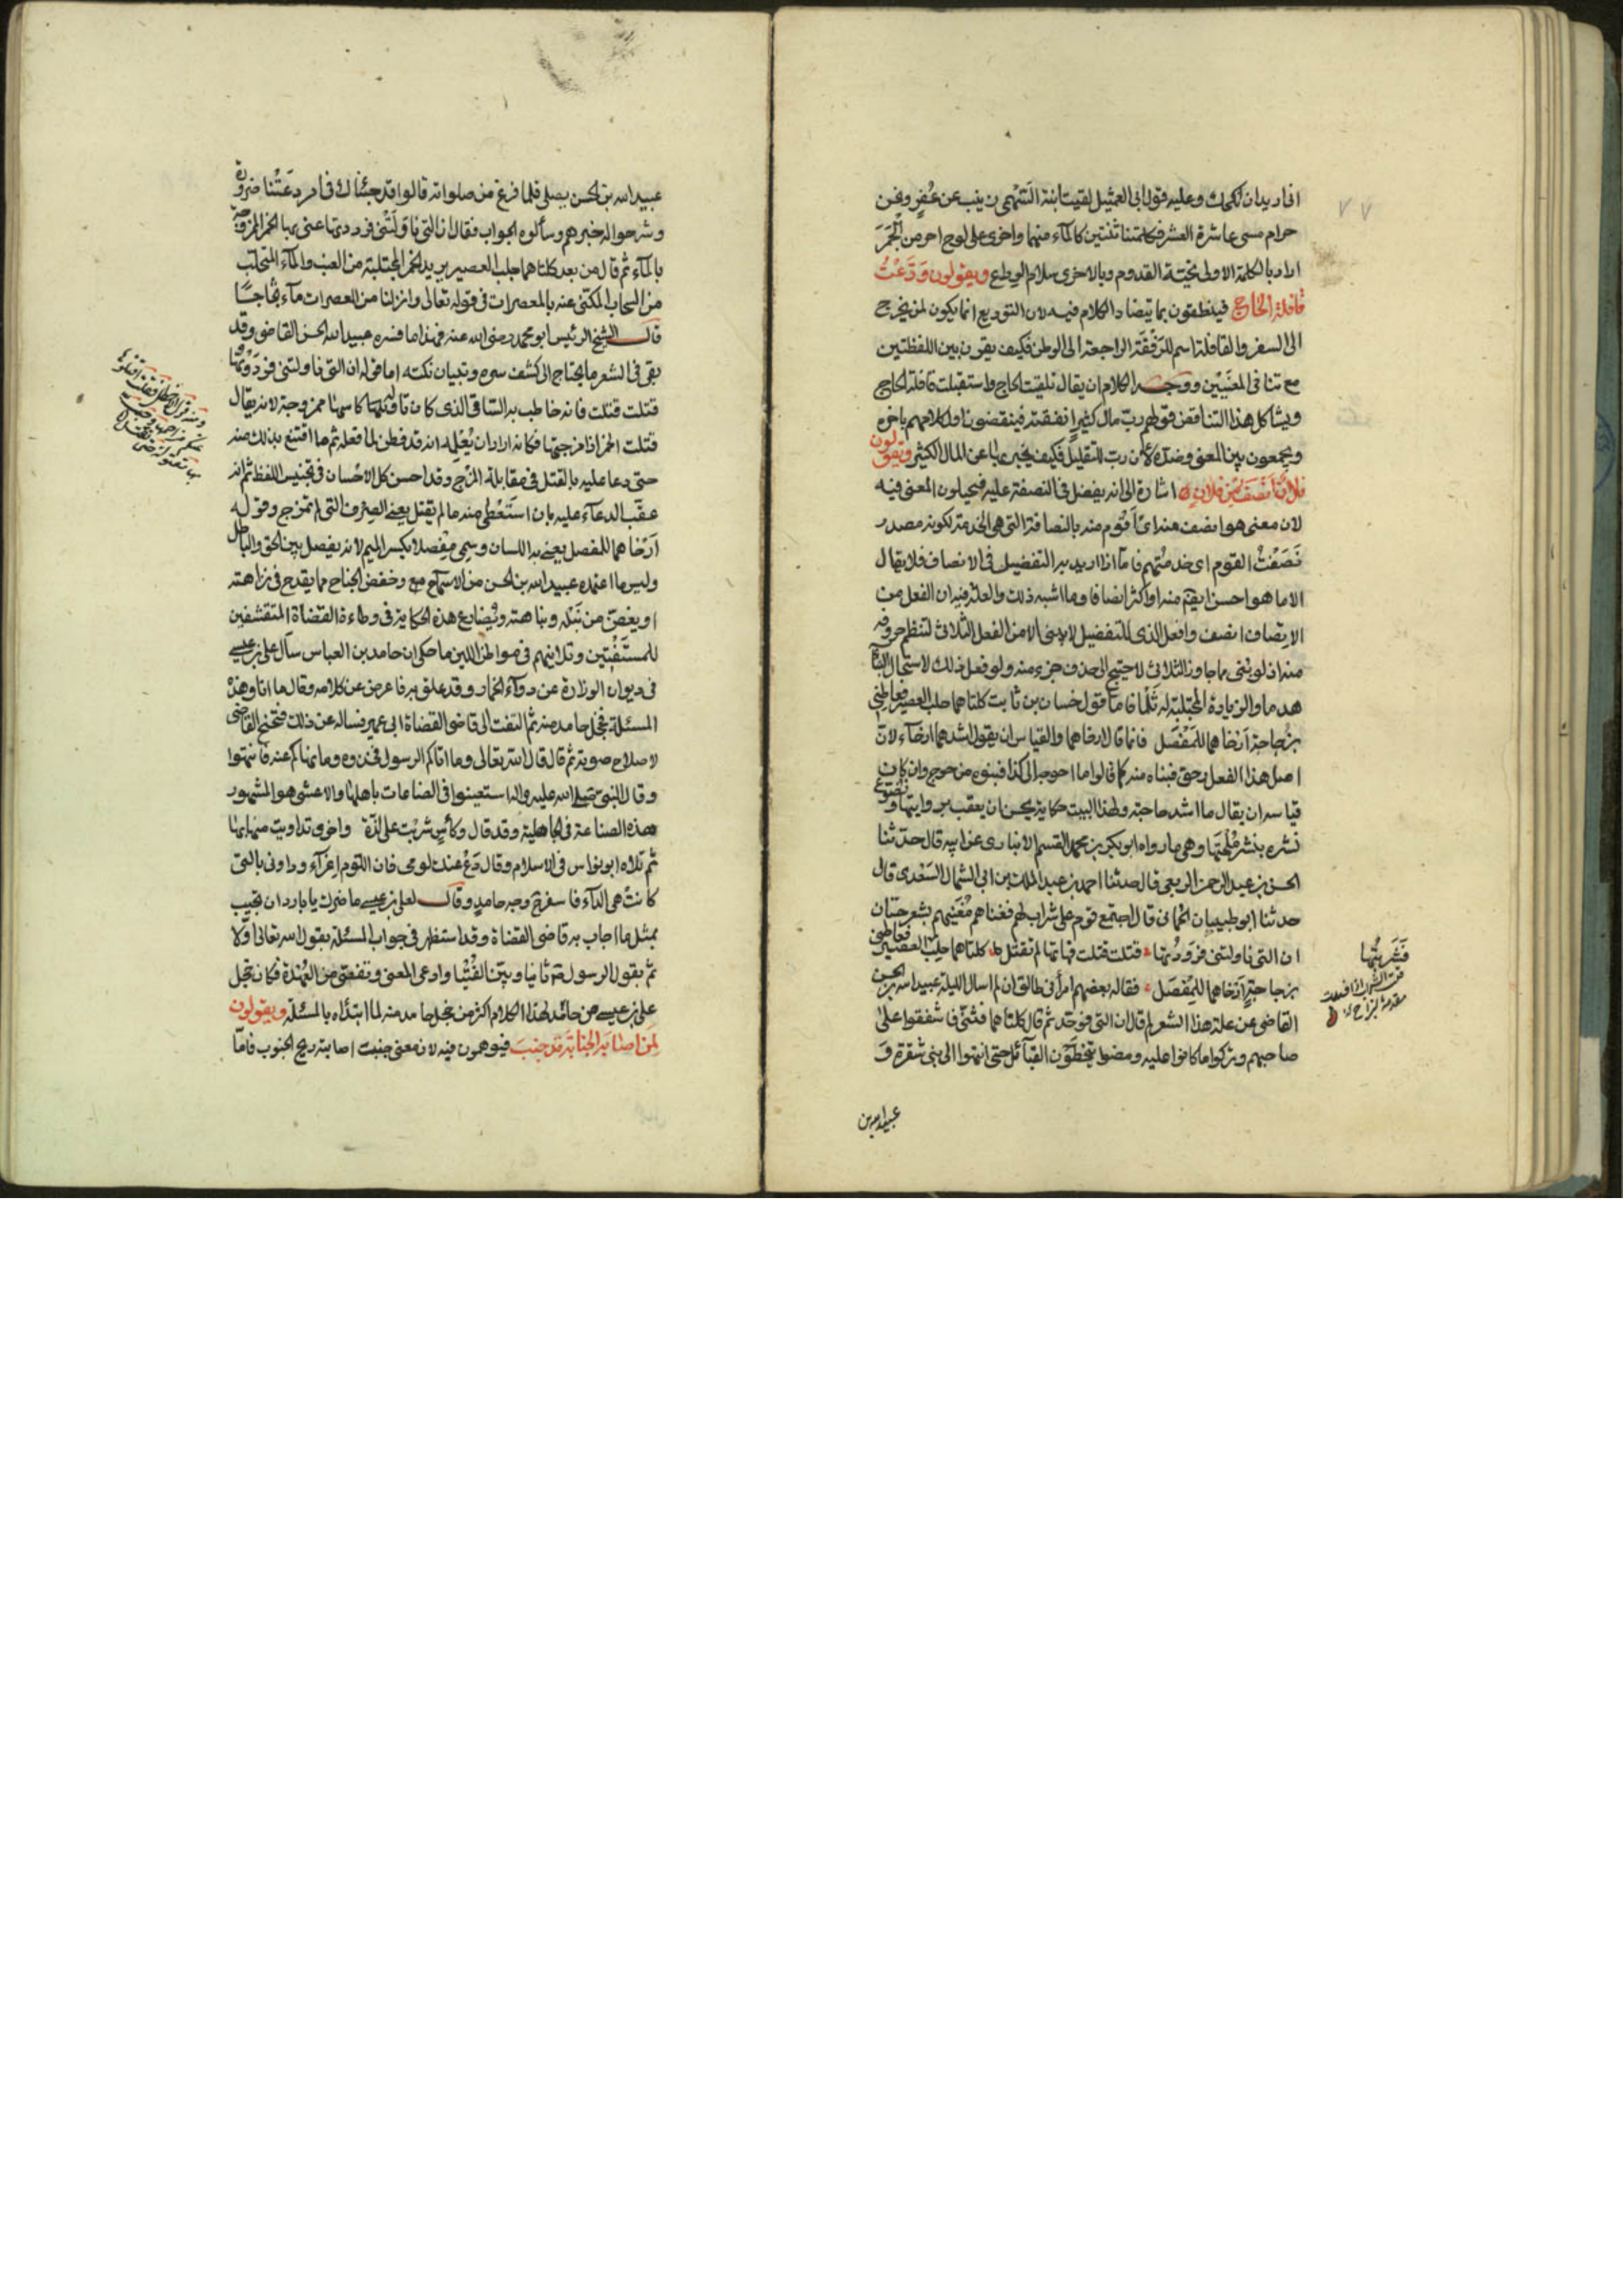 انى اريد ان لكى لك وعليه قول ابى العمثيل لقيت ابنة السهمى زينب عن عُفرٍ ونحن
حرام مسى عاشرة العشر فكلمتنا ثنتين كالماء منهما واخرى على لوح احر من الجمر
اراد بالكلمة الاولى تحية القدوم وبالاخرى سلام الوداع ويقولون وَدَّعْتُ
قافلة الحاج فينطقون بما يتضاد الكلام فيه لان التوديع انما يكون لمن يخرج
الى السفر والقافلة اسم للرُفقة الراجعة الى الوطن فكيف يقرن بين اللفظتين
مع تنافى المعنيين ووجه الكلام ان يقال تلقيت الحاج واستقبلت قافلة الحاج
ويشاكل هذا التناقض قولهم رب مال كثيرٍ انفقته فينقضون اول كلامهم باخره
ويجمعون بين المعنى وضده لان رب للتقليل فكيف يخبر بها عن المال الكثير ويقولون
فلان انصف من فلان اشارة الى انه يفضل فى النصفة عليه فيحيلون المعنى فيه
لان معنى هو انصف منه اى اقوم منه بالنصافة التى هى الخدمة لكونه مصدر
نَصَفْتُ القوم اى خدمتهم فاما اذا اريد به التفضيل فى الانصاف فلا يقال
الا ما هو احسن انصافا منه او اكثر انصافا وما اشبه ذلك والعلة فيه ان الفعل من
الانصاف انصف وافعل الذى للتفضيل لا يبنى الا من الفعل الثلاثى لتنظم حروفه
منه اذ لو بنى مما جاوز الثلاثى لاحتيج الى حذف جزء منه ولو فعل ذلك لاستحال البناء
هدما والزيادة المجتلبة له ثَلْمًا فاما قول حسان بن ثابت كلتاهما حلب العصير فعاطنى
بزجاجة ارخاهما للمفصل فانما قال ارخاهما والقياس ان يقول اشدهما ارخاء لان
اصل هذا الفعل رخى فبناه منه كما قالوا ما احوجه الى كذا فبنوه من حوج وان كان
قياسه ان يقال ما اشد حاجته ولهذا البيت حكاية يحسن ان يعقب بروايتها ويضوع
نشره بنشر مُلْحَتها وهى ما رواه ابو بكر بن محمد القسم الانبارى عن ابيه قال حدثنا
الحسن بن عبد الرحمن الربعى قال حدثنا احمد بن عبد الملك بن ابى الشمال السَعْدى قال
حدثنا ابو ظبيان الحمانى قال اجتمع قوم على شراب لهم فغناهم مُغنيهم بشعر حسان
ان التى ناولتنى فرددتها قتلت قتلت فهاتها لم تقتل كلتاهما حلب العصير فعاطنى
بزجاجةٍ ارخاهما للمفصل فقال بعضهم امرأتى طالق ان لم اسال الليلة عبيد الله بن الحسن
القاضى عن علة هذا الشعر لم قال ان التى فوحّد ثم قال كلتاهما فثنّى فاشفقوا على
صاحبهم وتركوا ما كانوا عليه ومضوا يتخطون القبائل حتى انتهوا الى بنى شقرة و
عبيد الله بن
عبيد الله بن الحسن يصلى فلما فرغ من صلواته قالوا قد جئناك فى امر دعتنا ضرورة
وشرحوا له خبرهم وسألوه الجواب فقال ان التى ناولتنى فرددتها عنى بها الخمر الممزوجة
بالماء ثم قال من بعد كلتاهما حلب العصير يريد الخمر المجتلبة من العنب والماء المتحلب
من السحاب المكنى عنه بالمعصرات فى قوله تعالى وانزلنا من المعصرات ماء ثجاجًا
قال الشيخ الرئيس ابو محمد رضى الله عنه فهذا ما فسره عبيد الله الحسن القاضى وقد
بقى فى الشعر ما يحتاج الى كشف سره وتبيان نكته اما قوله ان التى ناولتنى فرددتها
قتلت قتلت فانه خاطب به الساقى الذى كان ناوله كاسا ممزوجة لانه يقال
قتلت الخمر اذا مزجتها فكانه اراد ان يُعلمه انه قد فطن لما فعله ثم ما اقتنع بذلك منه
حتى دعا عليه بالقتل فى مقابلة المزج وقد احسن كل الاحسان فى تجنيس اللفظ ثم انه
عقّب الدعاء عليه بان استعطى منه ما لم يقتل يعنى الصرف التى لم تمزج وقوله
ارخاهما للمفصل يعنى به اللسان وسمى مفصلا بكسر الميم لانه يفصل بين الحق والباطل
وليس ما اعتمده عبيد الله بن الحسن من الاسماح وخفض الجناح مما يقدح فى نزاهته
او يغض من نبله ونباهته ويُضارع هذه الحكاية فى وطاءة القضاة المتقشفين
للمستفتين وتلاينهم فى مواطن اللين ما حكى ان حامد بن العباس سأل على بن عيسى
فى ديوان الوزارة عن دواء الخمار وقد علق به فاعرض عن كلامه وقال ما انا وهذه
المسئلة فخجل حامد منه ثم التفت الى قاضى القضاة ابى عمر فساله عن ذلك فتنحنح القاضى
لاصلاح صوته ثم قال قال الله تعالى وما اتاكم الرسول فخذوه وما نهاكم عنه فانتهوا
وقال النبى صلى الله عليه واله استعينوا فى الصناعات باهلها والاعشى هو المشهور
بهذه الصناعة فى الجاهلية وقد قال وكأسٍ شربت على لذة واخرى تداويت منها بها
ثم تلاه ابو نواس فى الاسلام وقال دع عنك لومى فان اللوم اغراء وداونى بالتى
كانت هى الداء فاسفر وجه حامدٍ وقال لعلى بن عيسى ما ضرك يا بارد ان تجيب
بمثل ما اجاب به قاضى القضاة وقد استظهر فى جواب المسئلة بقول الله تعالى اولا
ثم بقول الرسول ثانيا وبيّن الفُتيا وادعى المعنى وتفصى من العُهدة فكان خجل
على بن عيسى من حامد لهذا الكلام اكثر من خجل حامد منه لما ابتداه بالمسئلة ويقولون
لمن اصابته الجنابة قد جنب فيوهمون فيه لان معنى جنب اصابته ريح الجنوب فاما